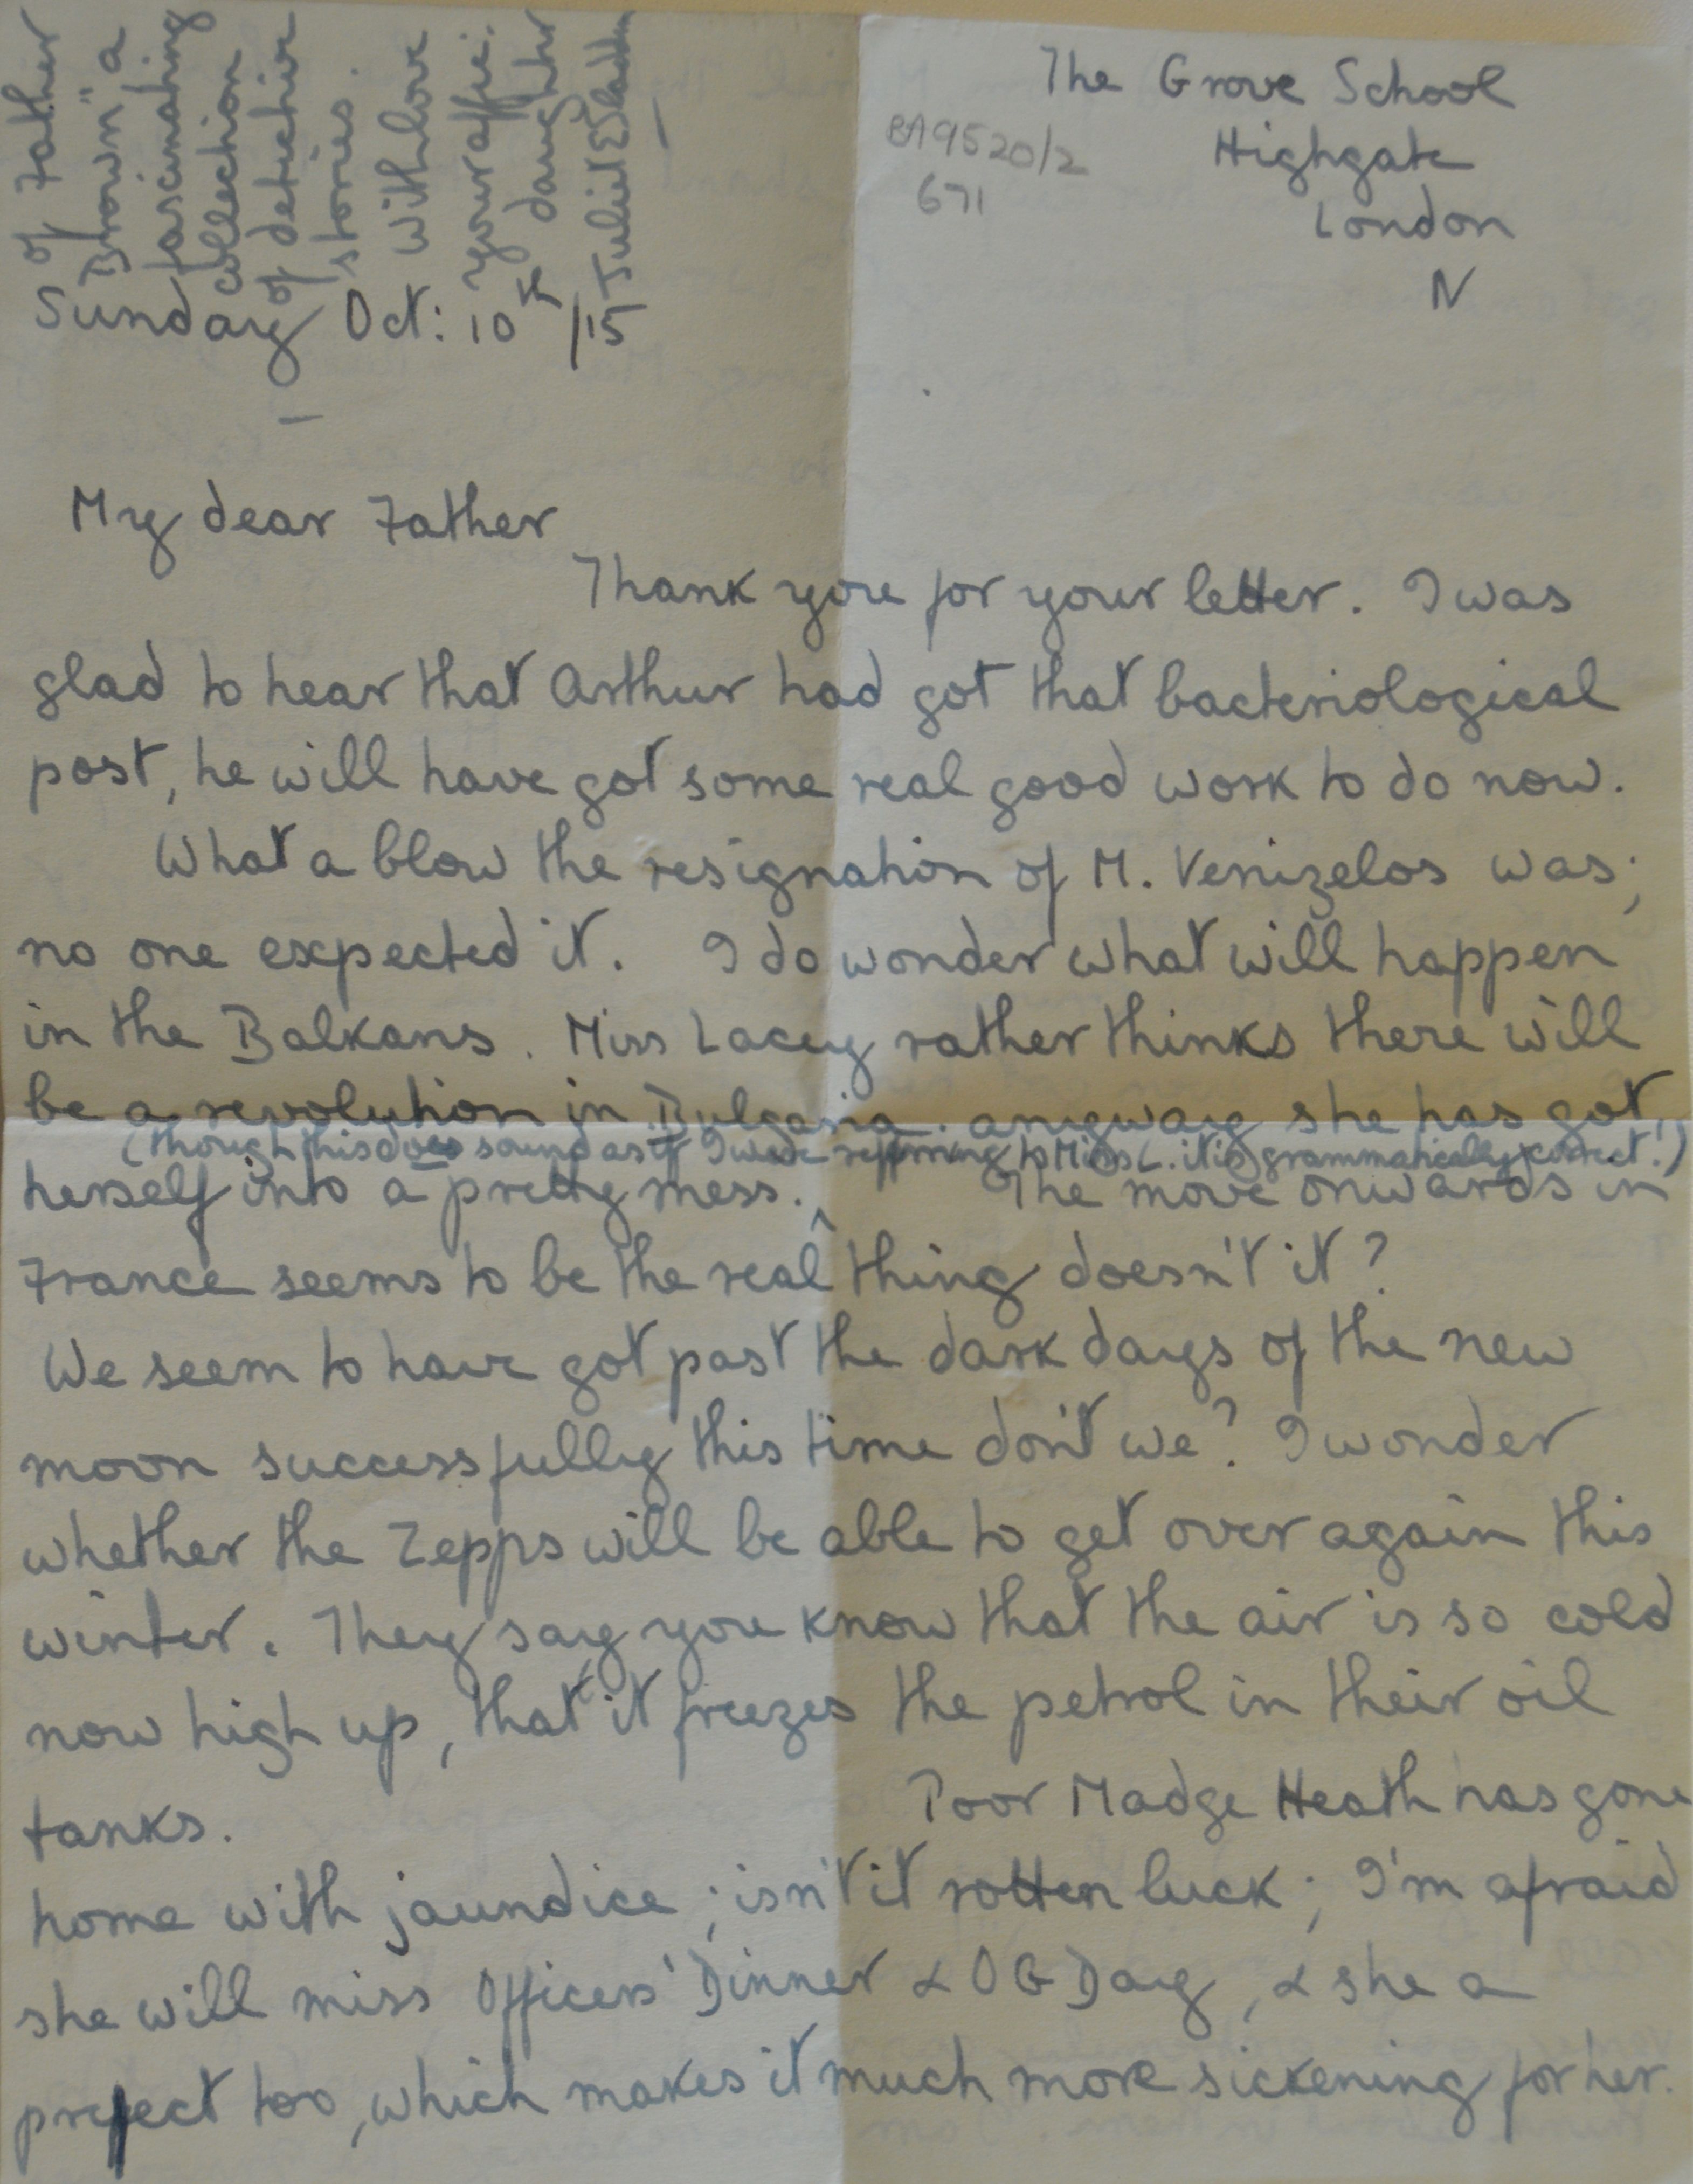 The Grove School
Highgate
London
N
BA9520/2
671
Sunday Oct: 10th/15
My dear Father
Thank you for your letter. I was
glad to hear that Arthur had got that bacteriological
post, he will have got some real good work to do now.
What a blow the resignation of M. Venizelos was;
no one expected it. I do wonder what will happen
in the Balkans. Miss Lacey rather thinks there will
be a revolution in Bulgaria. anyway she has got
(though this does sound as if I were referring to Miss L. it is grammatically correct!)
herself into a pretty mess. ^ The move onwards in
France seems to be the real thing doesn't it?
We seem to have got past the dark days of the new
moon successfully this time don't we? I wonder
whether the Zepps will be able to get over again this
winter. They say you know that the air is so cold
now high up, that it freezes the petrol in their oil
tanks. Poor Madge Heath has gone
home with jaundice; isn't it rotten luck; I'm afraid
she will miss Officers' Dinner & O G Day, & she a
prefect too, which makes it much more sickening for her.
of Father
Brown" a
fascinating
collection
of detective
stories.
with love
your affte:
daughter
Juliet E Sladden